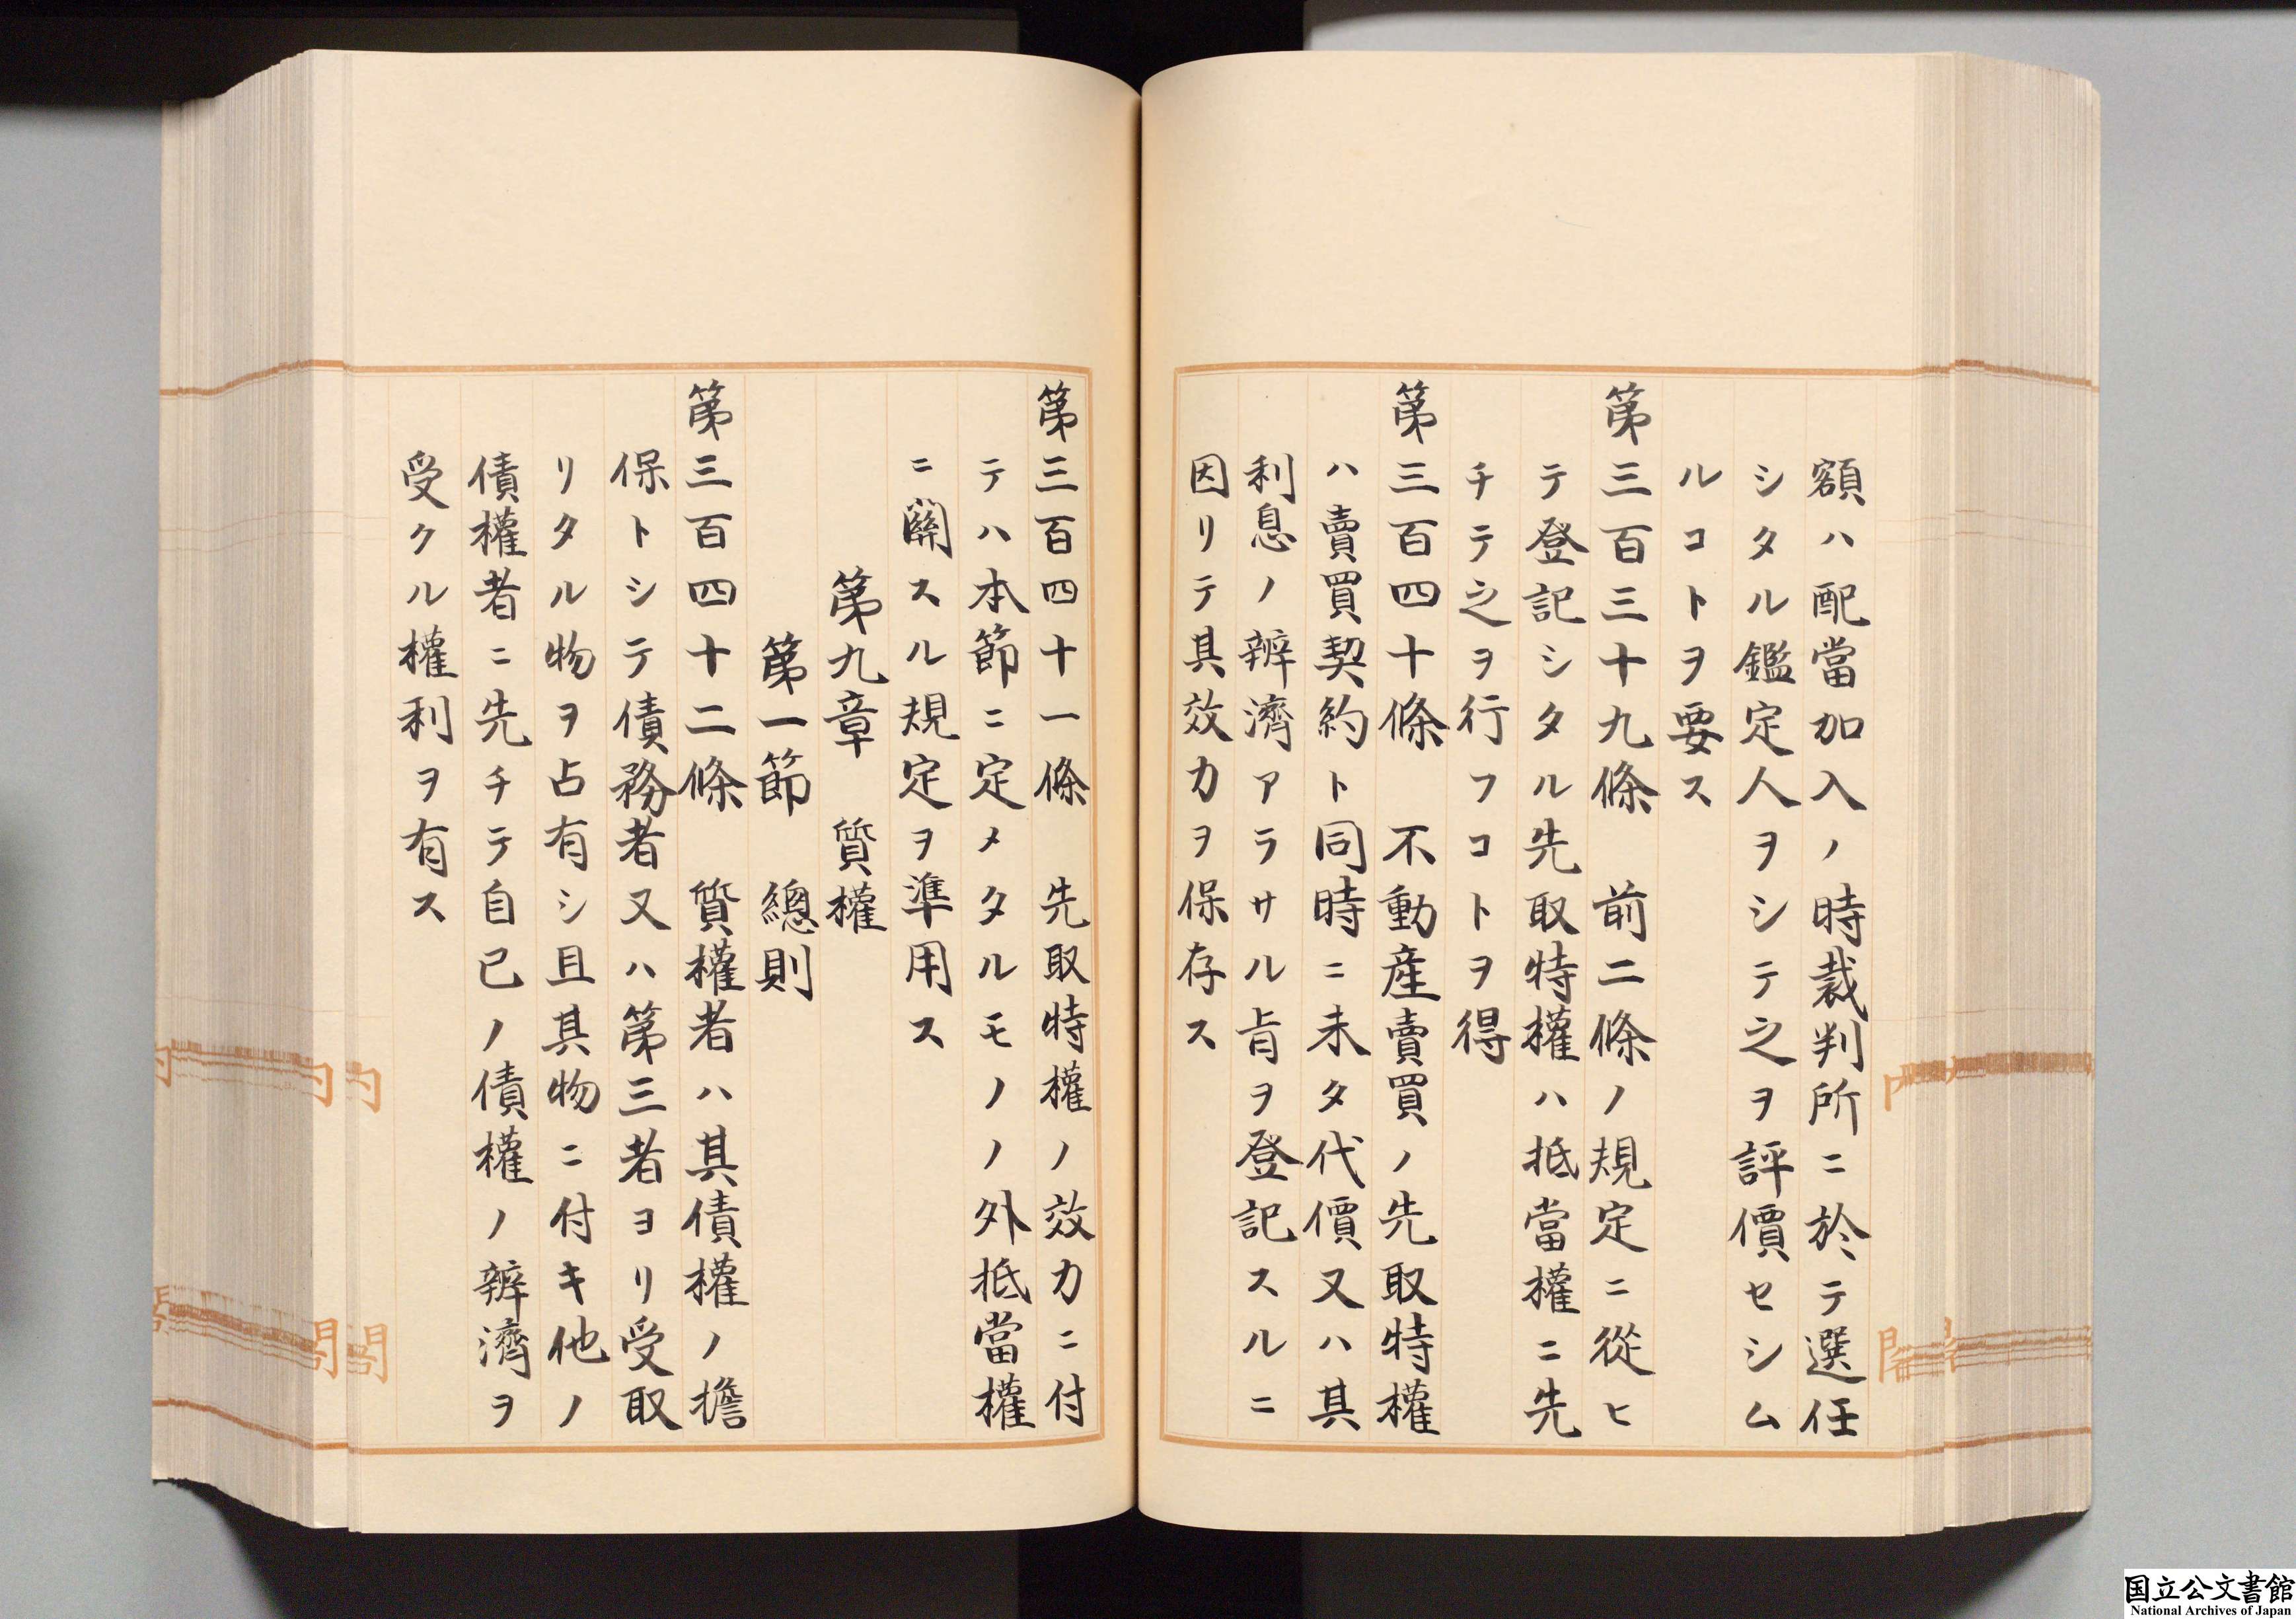 額ハ配當加入ノ時裁判所ニ於テ選任
シタル鑑定人ヲシテ之ヲ評價セシム
ルコトヲ要ス
第三百三十九條　前二條ノ規定ニ從ヒ
テ登記シタル先取特權ハ抵當權ニ先
チテ之ヲ行フコトヲ得
第三百四十條　不動產賣買ノ先取特權
ハ賣買契約ト同時ニ未タ代價又ハ其
利息ノ辨濟アラサル旨ヲ登記スルニ
因リテ其效力ヲ保存ス
第三百四十一條　先取特權ノ效力ニ付
テハ本節ニ定メタルモノノ外抵當權
ニ關スル規定ヲ準用ス
第九章　質權
第一節　總則
第三百四十二條　質權者ハ其債權ノ擔
保トシテ債務者又ハ第三者ヨリ受取
リタル物ヲ占有シ且其物ニ付キ他ノ
債權者ニ先チテ自己ノ債權ノ辨濟ヲ
受クル權利ヲ有ス
国立公文書館
National Archives of Japan